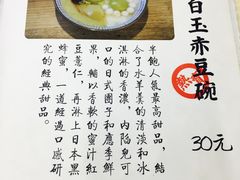 白玉赤豆碗
30元
半飽人氣最高甜品，結
合了水羊羹的清淡和冰
淇淋的香濃，內陷兒可
口的日式團子和應季鮮
果，輔以香軟的蜜汁紅
豆薏仁，再淋上日本黑
蜂蜜，一道經過口感研
究的經典甜品。